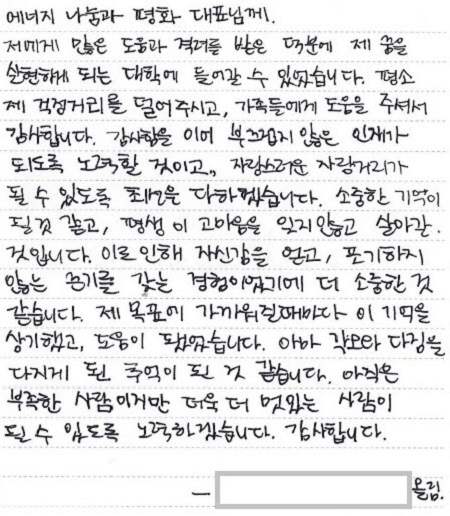 에너지 나눔과 평화 대표님께.
저에게 많은 도움과 격려를 받은 덕분에 제 꿈을
실현하게 되는 대학에 들어갈 수 있었습니다. 평소
제 걱정거리를 덜어주시고, 가족들에게 도움을 주셔서
감사합니다. 감사함을 이어 부끄럽지 않은 인재가
되도록 노력할 것이고, 자랑스러운 자랑거리가
될 수 있도록 최선을 다하겠습니다. 소중한 기억이
될것 같고, 평생 이 고마움을 잊지않고 살아갈.
것입니다. 이로 인해 자신감을 얻고, 포기하지
않는 끈기를 갖는 경험이었기에 더 소중한 것
같습니다. 제 목표에 가까워질때마다 이 기억을
상기했고, 도움이 됐었습니다. 아마 각오와 다짐을
다지게 된 추억이 된 것 같습니다. 아직은
부족한 사람이지만 더욱 더 멋있는 사람이
될 수 있도록 노력하겠습니다. 감사합니다.
— 올림.